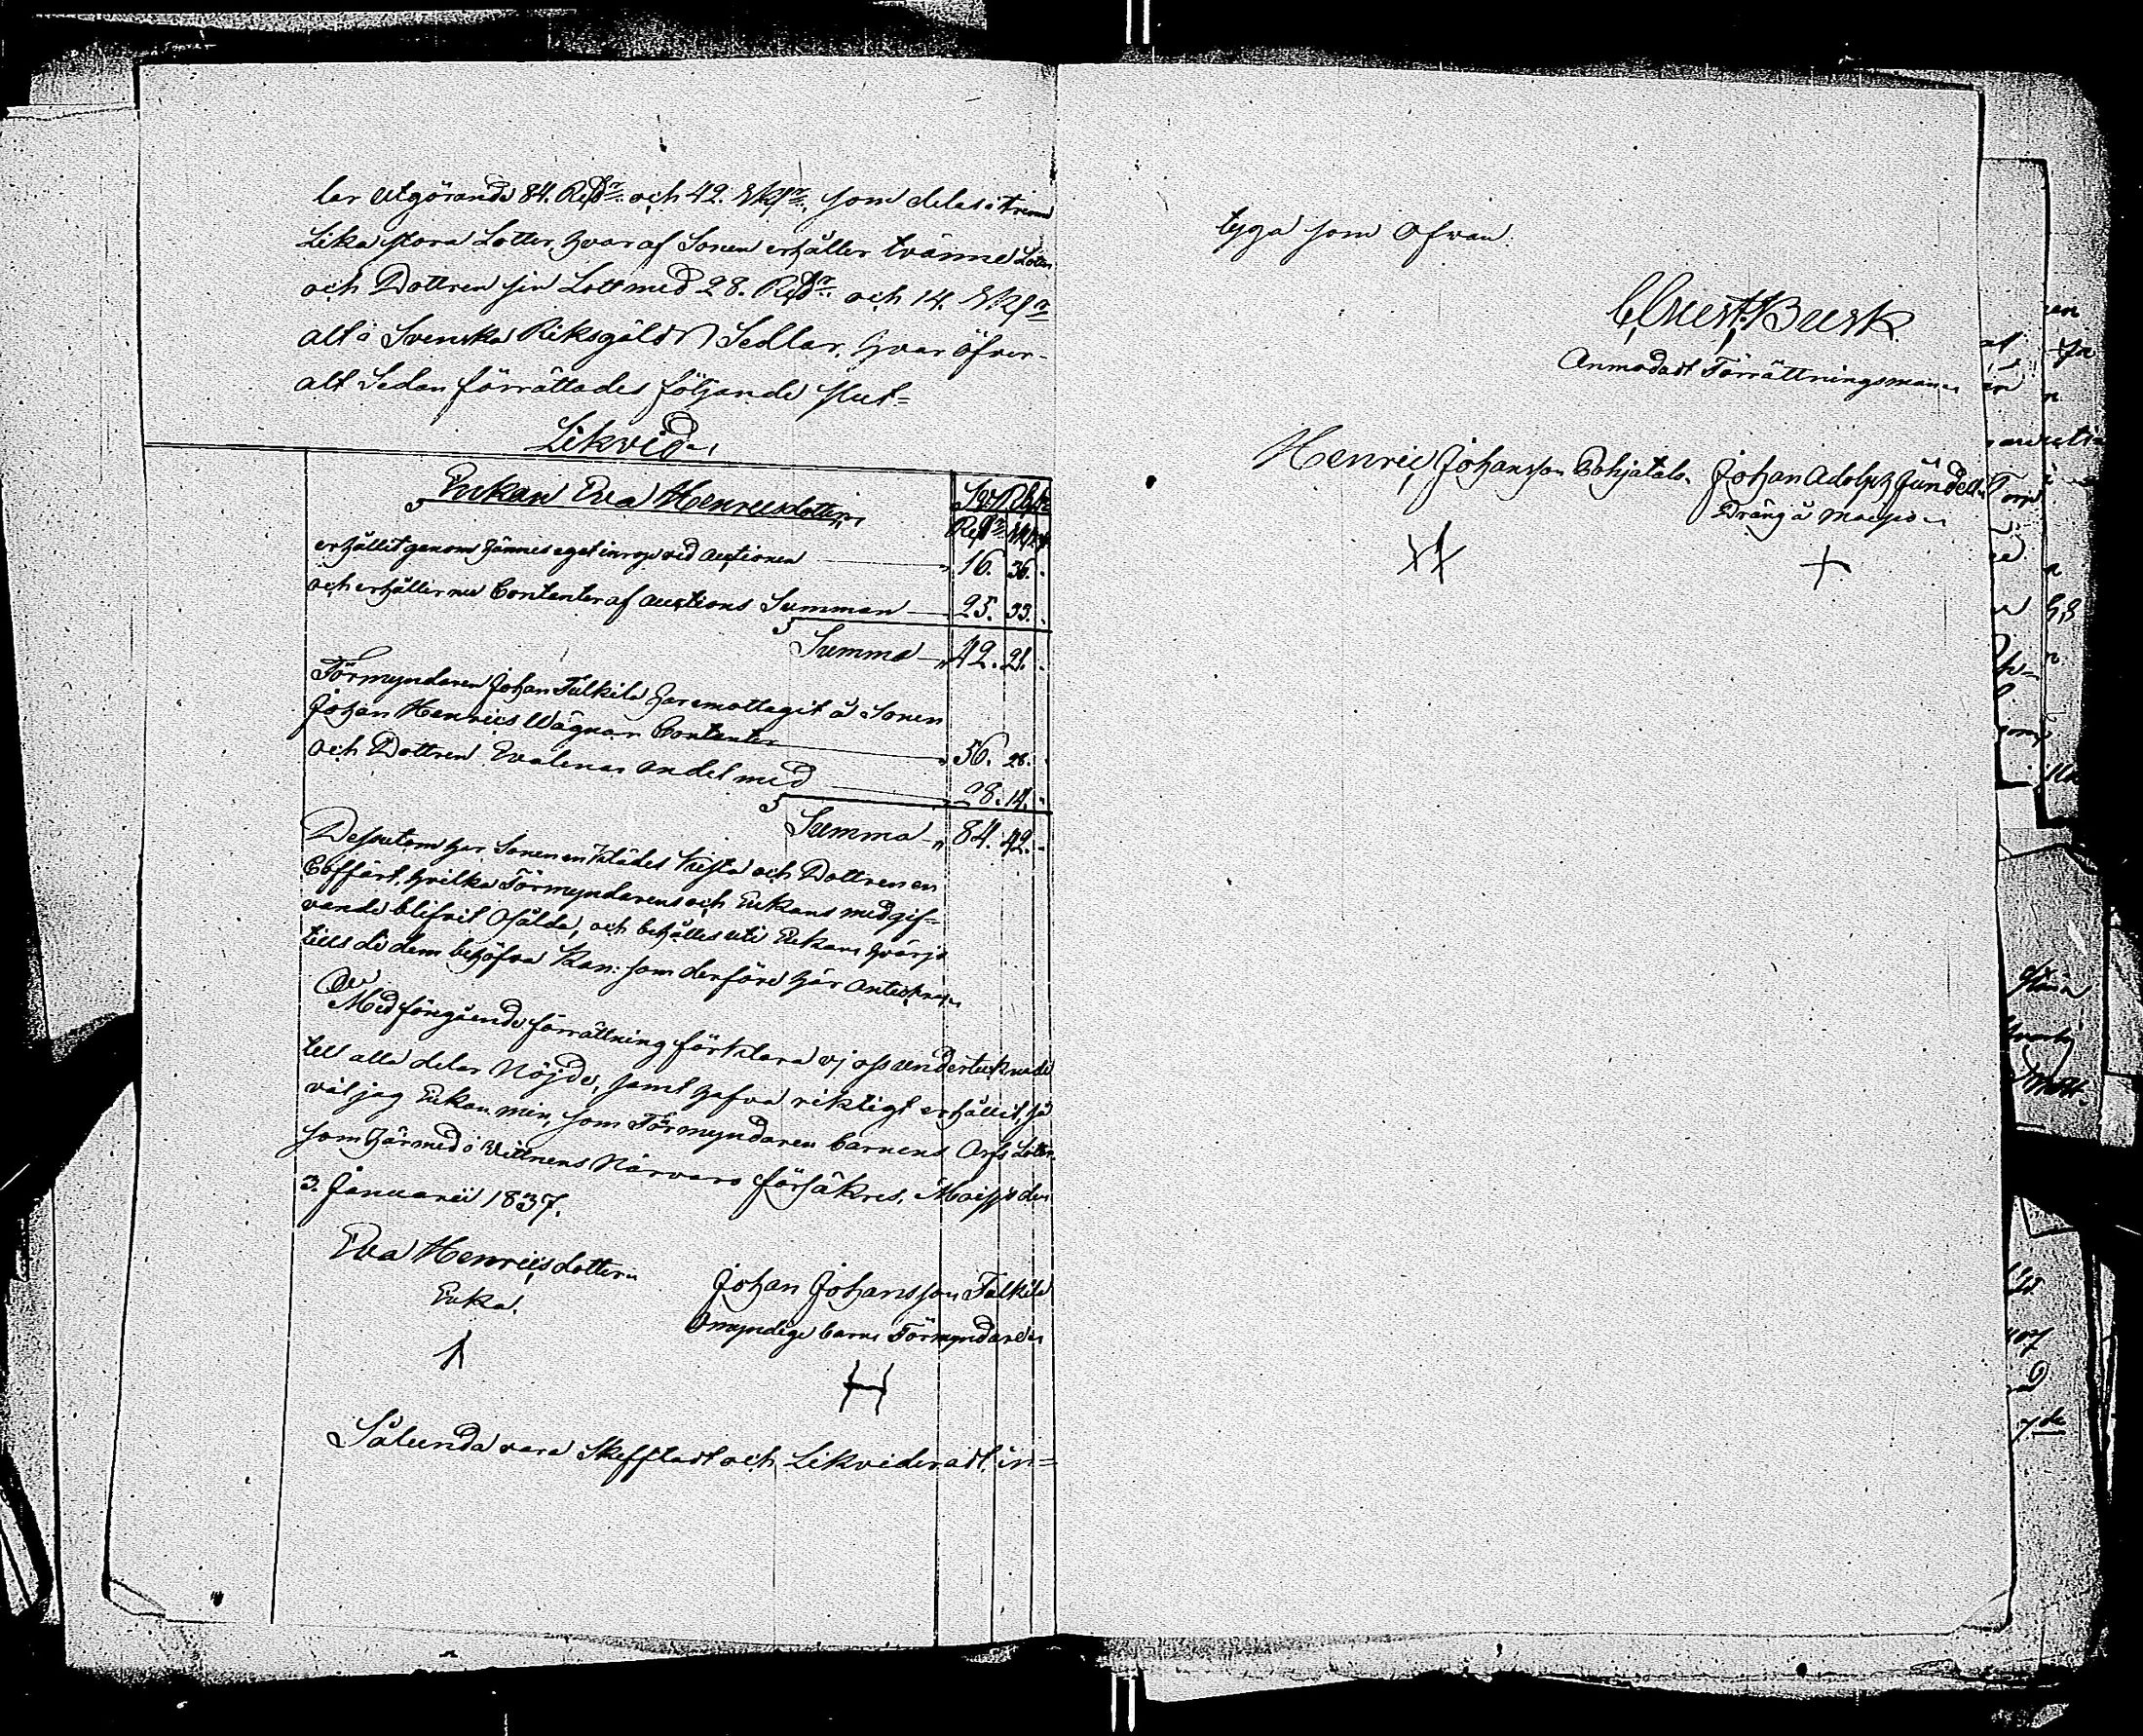 lar utgörande 84. Rdr och 42. sk: som delas i trenne
Lika stora Lotter, hvar af Sonen erhåller tvänne Lotter
och Dottren sin Lott med 28. Rdr och 14. sk:
alt i Svenska Riksgälds Sedlar, hvar öfver-
alt Sedan förrättades följande slut=
Likvid
Enkan Eva Henricsdotter
erhållit genom hännes eget inrop vid auctionen 16. 36.
och erhåller nu Contenter af auctions Summan 25. 33.
Summa 42. 21.
Förmyndaren Johan Falkila har emottagit å Sonen
Johan Henrics Wägnar Contenter 56. 28.
och Dottren Evalenas andel med 28. 14.
Summa 84. 42.
Dessutom har Sonen en Klädes Kista och Dottren en
Coffärt, hvilka Förmyndarens och Enkans medgif=
vande blifvit osålda, och behålles uti Enkans hvärjo
tills di dem behöfva Kan: som derföre här
Med föregående förrättning förklara vj oss undertecknade
till alla delar Nöjde, samt hafva riktigt erhållit, så
väl jag Enkan min, som Förmyndaren barnens Arfs Lotter
som härmed i Vittnens Närvaro försäkres. den
3. Januarii 1837.
Eva Henricsdotter
Enka.
Johan Johansson Falkila
Omyndige barns Förmyndare
Sålunda vara Skefftadt och Likvideradt, in=
tyga som ofvan.
Busk
Anmodadt Förrättningsman
Henric Johansson Pohjatalo Johan Adolph
Dräng å